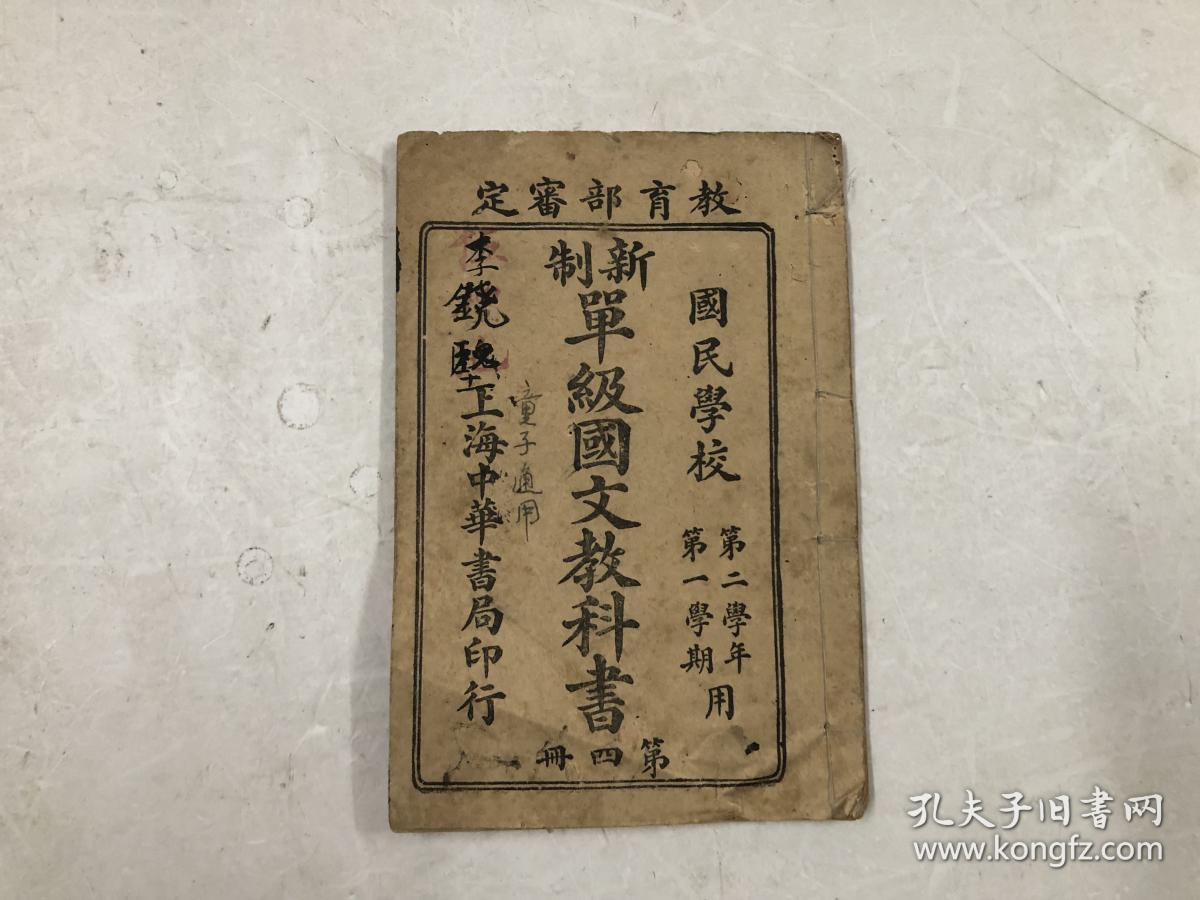 教育部審定
國民學校
第二學年
第一學期
用
新制
單級國文教科書
第四冊
童子通用
李鐃
上海中華書局印行
孔夫子旧书网
www.kongfz.com